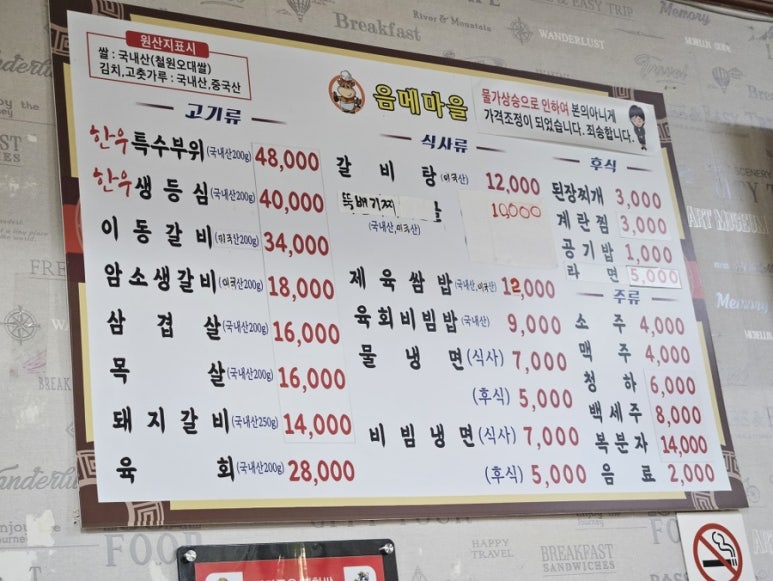 원산지표시
쌀 : 국내산(철원오대쌀)
김치,고춧가루 : 국내산,중국산
음메마을
물가상승으로 인하여 본의아니게
가격조정이 되었습니다. 죄송합니다.
고기류
한우특수부위(국내산200g) 48,000
한우생등심(국내산200g) 40,000
이동갈비(미국산200g) 34,000
암소생갈비(미국산200g) 18,000
삼겹살(국내산200g) 16,000
목살(국내산200g) 16,000
돼지갈비(국내산250g) 14,000
육회(국내산200g) 28,000
식사류
갈비탕(미국산) 12,000
뚝배기 10,000
(국내산,미국산)
제육쌈밥(국내산,미국산) 12,000
육회비빔밥(국내산) 9,000
물냉면(식사) 7,000
(후식) 5,000
비빔냉면(식사) 7,000
(후식) 5,000
후식
된장찌개 3,000
계란찜 3,000
공기밥 1,000
라면 5,000
주류
소주 4,000
맥주 4,000
청하 6,000
백세주 8,000
복분자 14,000
음료 2,000
Breakfast
River & Mountain
WANDERLUST
& EASY TRIP
Memory
Travel
SANDWICHES
FRE
ART MUSEUM
Memory
BREAK
Wanderlust
Enjoy the
Journey
FOOD
HAPPY
TRAVEL
BREAKFAST
SANDWICHES